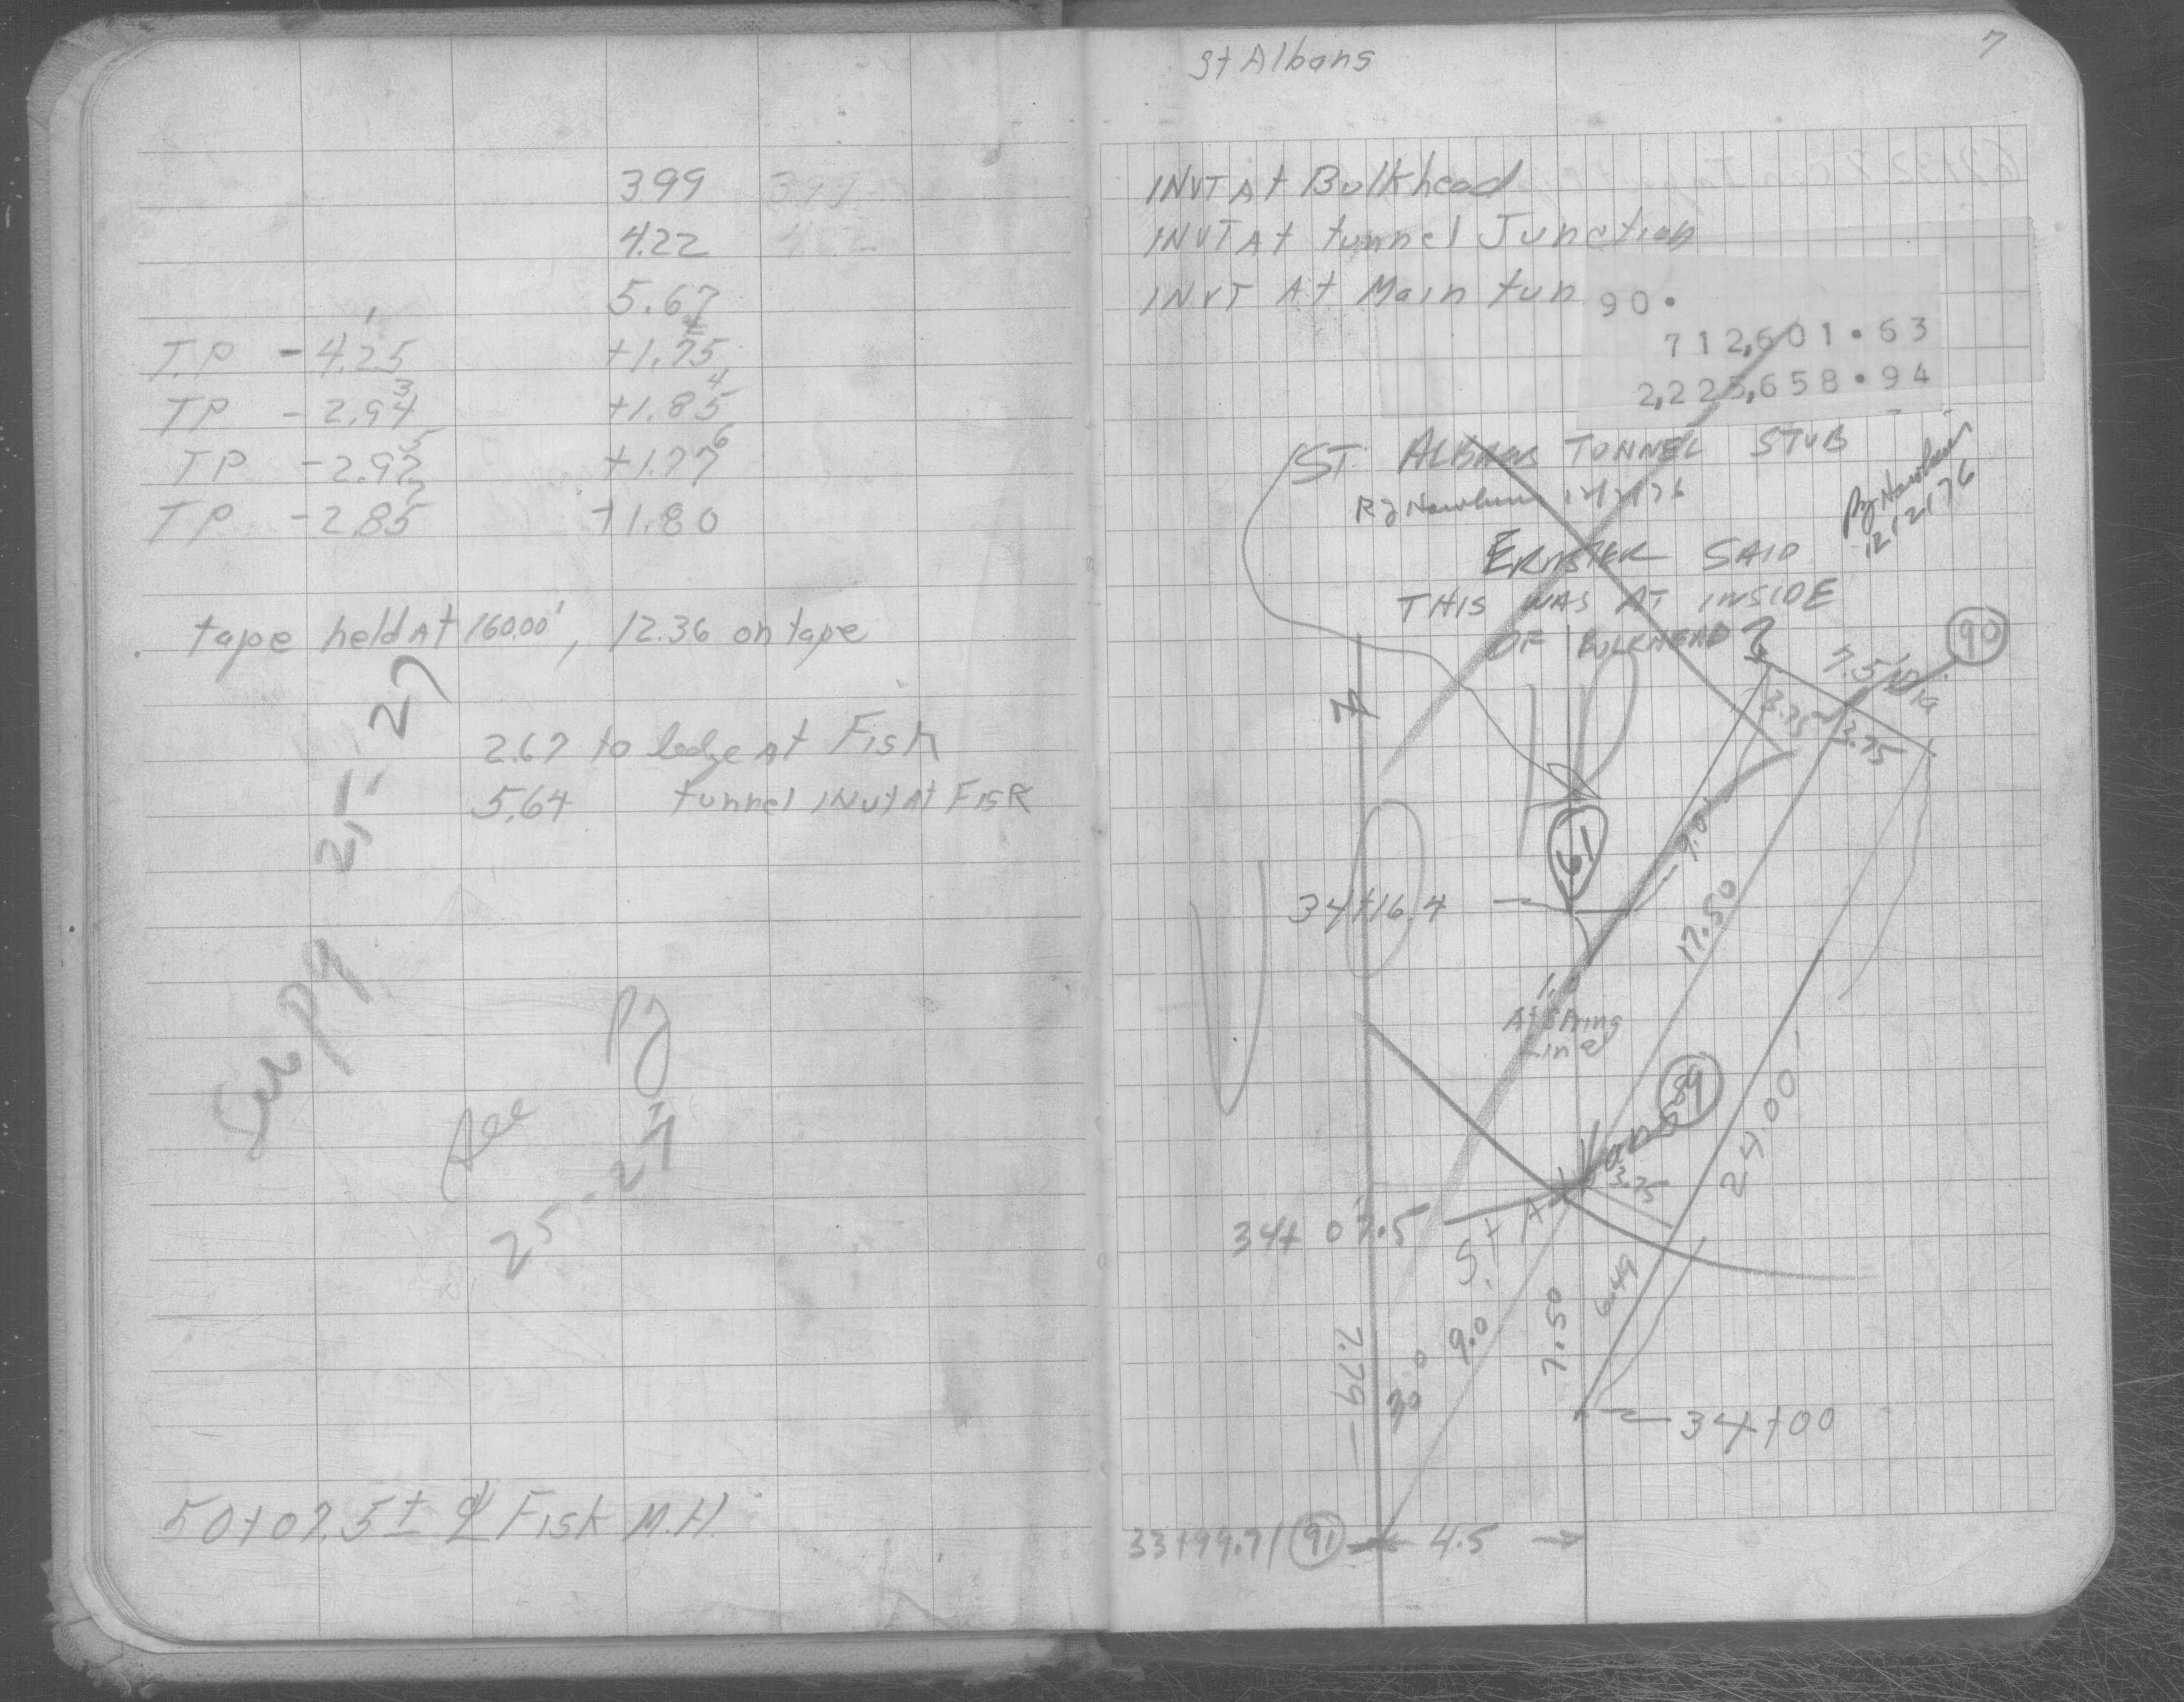 399 399
4.22 4.22
5.67
T.P -4.25 +1.75
TP -2.94 +1.85
TP -2.92 +1.77
TP -2.85 +1.80
1 2 3 4 5 6 7
tape held At 160.00', 12.36 on tape
2.67 to ledge at Fisk
5.64 tunnel INVt At Fisk
See pg 25-27
See pg 25-27
50+07.5± ℄ Fisk M.H.
St Albans
7
INVT At Bulkhead
INVT At tunnel Junction
INVT At Main tun
90.
712,601.63
2,223,658.94
ST. ALBANS TUNNEL STUB
12/2/76
12/2/76
ERNSTER SAID
THIS WAS AT INSIDE
OF BULKHEAD?
7.5' Dia
90
3.75
3.75
VOID
61
9.0
34+16.4
17.50
1.0
At Spring
Line
59
24.00'
3.75
34+07.5
St A
6.49
7.50
9.0
30°
7.79
34+00
33+99.71 91 4.5